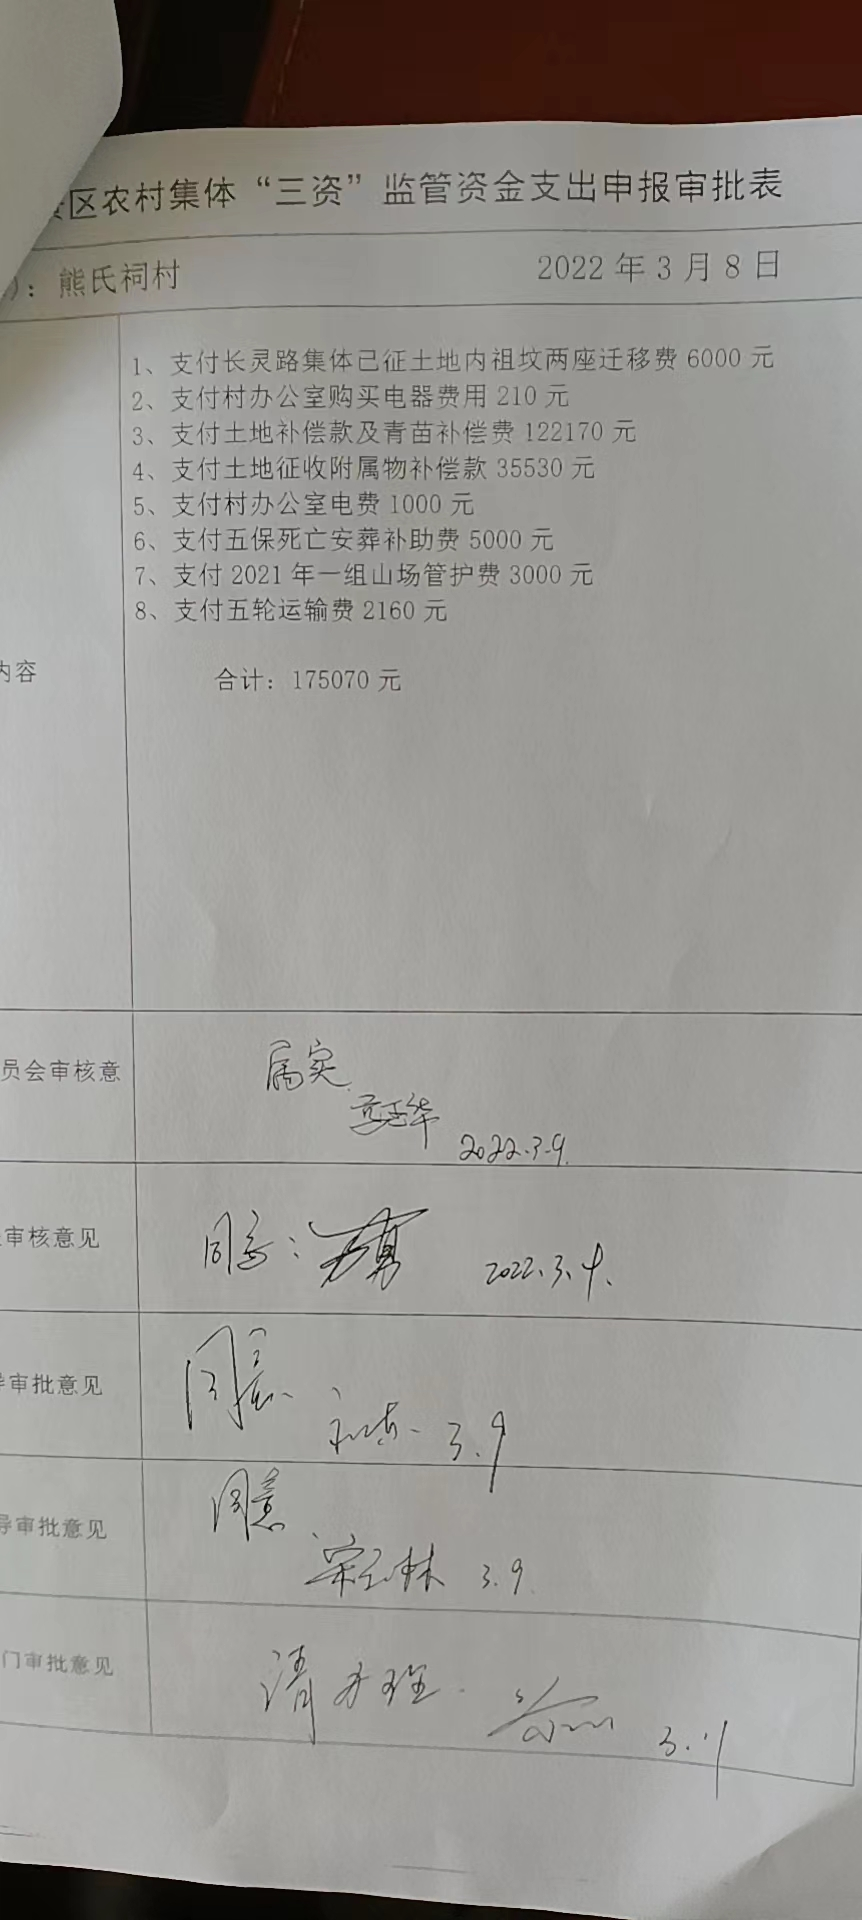 区农村集体“三资”监管资金支出申报审批表
：熊氏祠村 2022 年 3 月 8 日
1、支付长灵路集体已征土地内祖坟两座迁移费 6000 元
2、支付村办公室购买电器费用 210 元
3、支付土地补偿款及青苗补偿费 122170 元
4、支付土地征收附属物补偿款 35530 元
5、支付村办公室电费 1000 元
6、支付五保死亡安葬补助费 5000 元
7、支付 2021 年一组山场管护费 3000 元
8、支付五轮运输费 2160 元
内容
合计：175070 元
员会审核意
属实
2022.3.9.
审核意见
同意：
2022.3.9.
审批意见
同意
3.9
导审批意见
同意
3.9.
门审批意见
请办理.